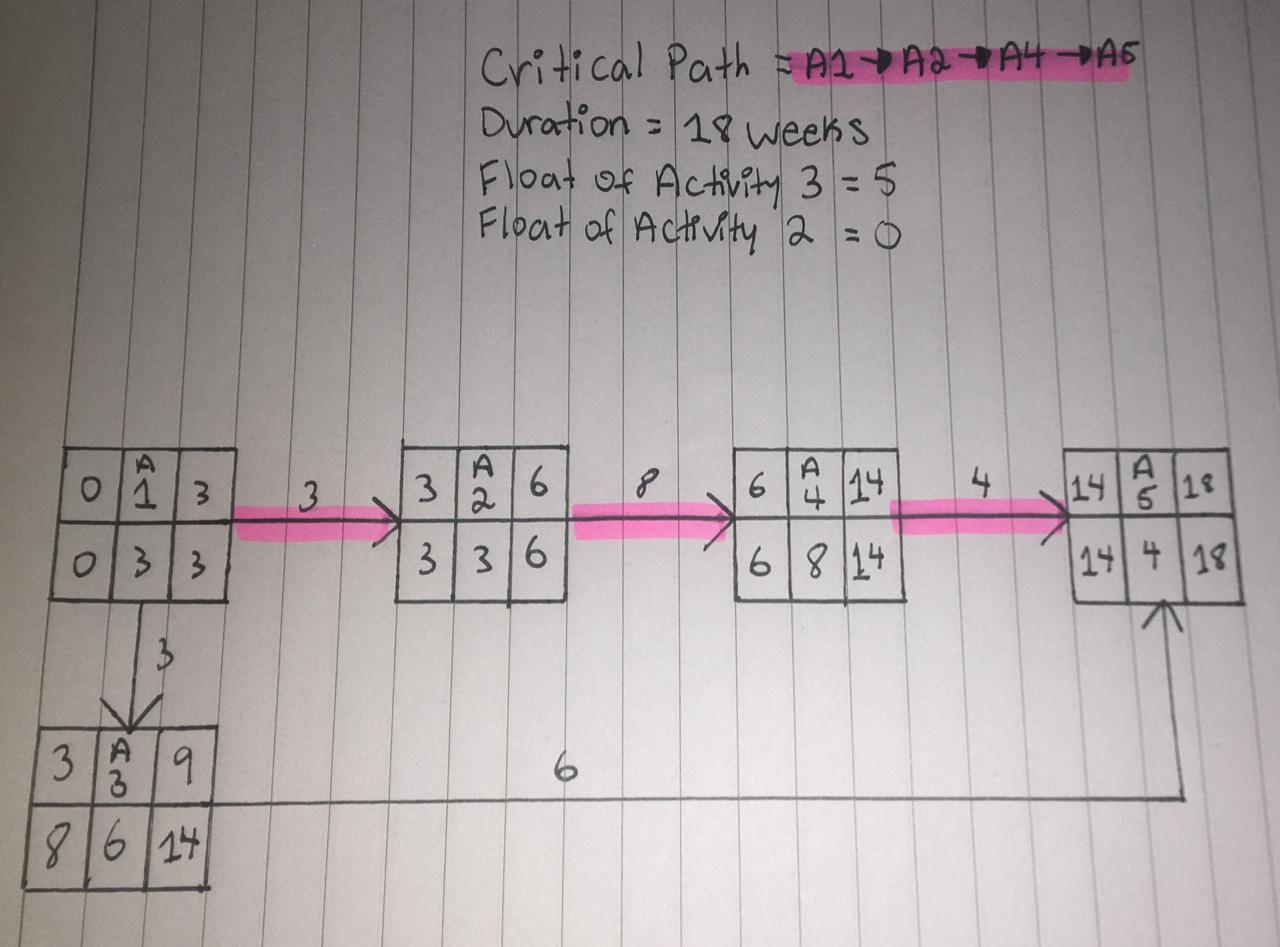 Critical Path = A1 → A2 → A4 → A5
Duration = 18 weeks
Float of Activity 3 = 5
Float of Activity 2 = 0
0 A1 3
0 3 3
3
3 A2 6
3 3 6
8
6 A4 14
6 8 14
4
14 A5 18
14 4 18
3
3 A3 9
8 6 14
6